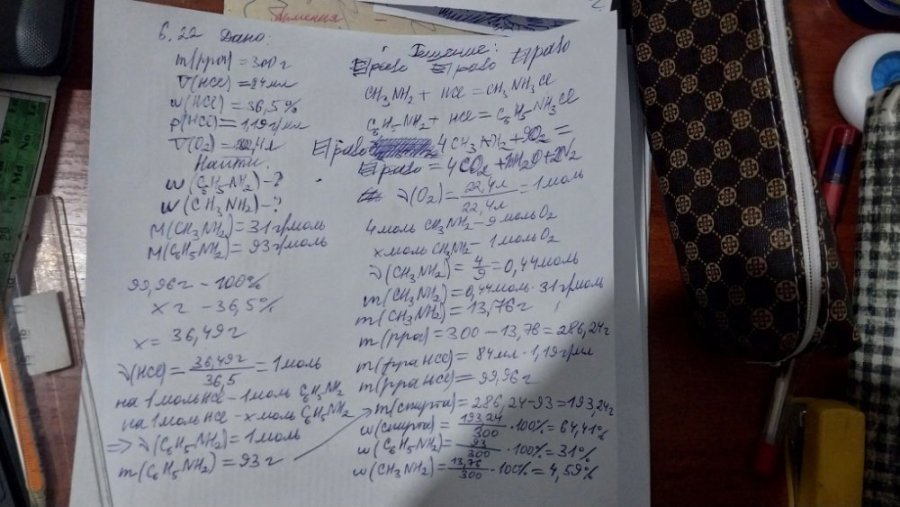 6.22 Дано:
m(рра) = 300 г
V(HCl) = 84 мл
w(HCl) = 36,5%
ρ(HCl) = 1,19 г/мл
V(O₂) = 22,4 л
Найти:
w(C₆H₅NH₂) - ?
w(CH₃NH₂) - ?
M(CH₃NH₂) = 31 г/моль
M(C₆H₅NH₂) = 93 г/моль
99,96 г - 100%
x г - 36,5%
x = 36,49 г
ν(HCl) = 36,49 г / 36,5 = 1 моль
на 1 моль HCl - 1 моль C₆H₅NH₂
на 1 моль HCl - x моль C₆H₅NH₂
=> ν(C₆H₅NH₂) = 1 моль
m(C₆H₅NH₂) = 93 г
Решение:
CH₃NH₂ + HCl = CH₃NH₃Cl
C₆H₅NH₂ + HCl = C₆H₅NH₃Cl
4CH₃NH₂ + 9O₂ =
= 4CO₂ + 10H₂O + 2N₂
ν(O₂) = 22,4 л / 22,4 л = 1 моль
4 моль CH₃NH₂ - 9 моль O₂
x моль CH₃NH₂ - 1 моль O₂
ν(CH₃NH₂) = 4/9 = 0,44 моль
m(CH₃NH₂) = 0,44 моль · 31 г/моль
m(CH₃NH₂) = 13,76 г
m(рра) = 300 - 13,76 = 286,24 г
m(рра HCl) = 84 мл · 1,19 г/мл
m(рра HCl) = 99,96 г
m(спирта) = 286,24 - 93 = 193,24 г
w(спирта) = 193,24 / 300 · 100% = 64,41%
w(C₆H₅NH₂) = 93 / 300 · 100% = 31%
w(CH₃NH₂) = 13,76 / 300 · 100% = 4,59%